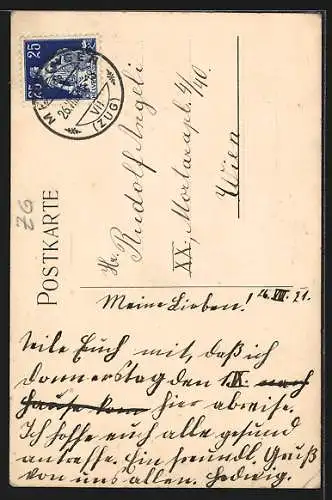 25 25
(ZUG)
26.VIII.
VII
POSTKARTE
ZG
Hr. Rudolf Angeli
XX, Mortarapl. 4/40.
Wien
Meine Lieben! 26. VIII. 21.
Teile Euch mit, daß ich
Donnerstag den 1.IX. nach
Hause kom hier abreise.
Ich hoffe euch alle gesund
antreffe. Ein freundl Gruß
von uns allen. Hedwig.